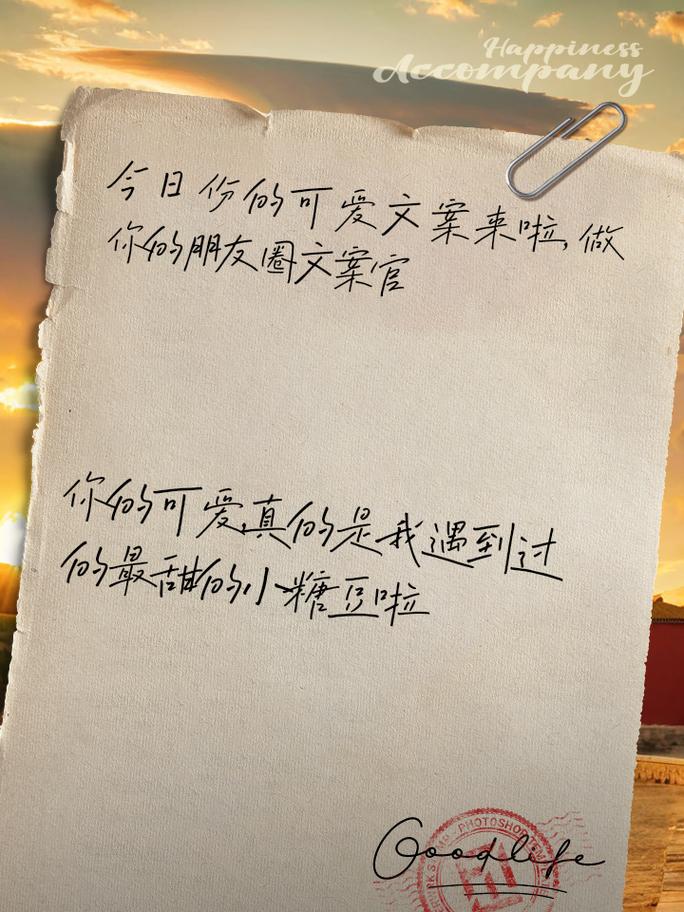 Happiness
Accompany
今日份的可爱文案来啦,做
你的朋友圈文案官
你的可爱,真的是我遇到过
的最甜的小糖豆啦
PHOTOSHOP
Goodlife